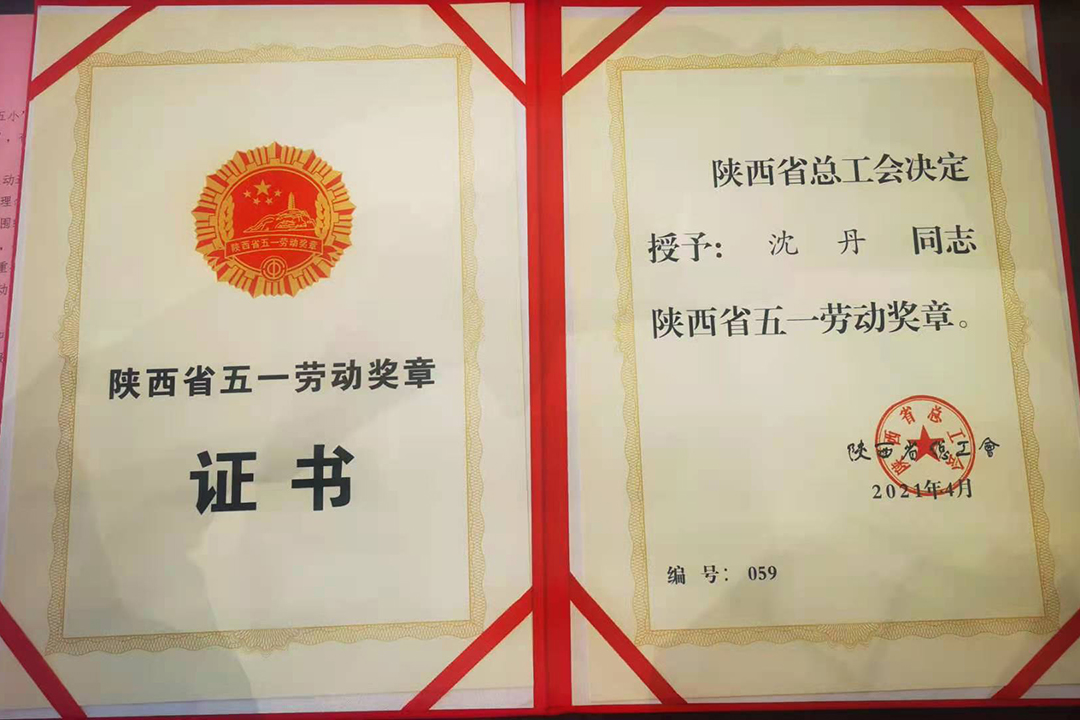 陕西省五一劳动奖章
陕西省五一劳动奖章
证书
陕西省总工会决定
授予：沈丹 同志
陕西省五一劳动奖章。
陕西省总工会
陕西省总工會
2021年4月
编号：059
五小
动
理
围
重
动